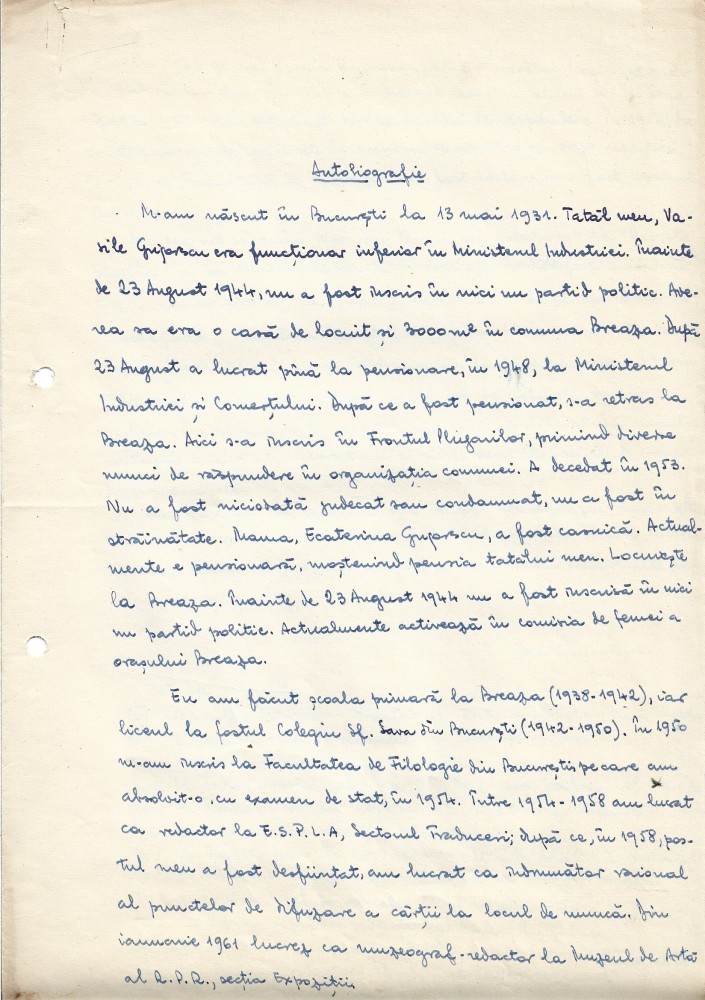 Autobiografie
M-am născut în București la 13 mai 1931. Tatăl meu, Va-
sile Grigorescu era funcționar inferior în Ministerul Industriei. Înainte
de 23 August 1944, nu a fost înscris în nici un partid politic. Ave-
rea sa era o casă de locuit și 3000 m² în comuna Breaza. După
23 August a lucrat pînă la pensionare, în 1948, la Ministerul
Industriei și Comerțului. După ce a fost pensionat, s-a retras la
Breaza. Aici s-a înscris în Frontul Plugarilor, primind diverse
munci de răspundere în organizația comunei. A decedat în 1953.
Nu a fost niciodată judecat sau condamnat, nu a fost în
străinătate. Mama, Ecaterina Grigorescu, a fost casnică. Actual-
mente e pensionară, moștenind pensia tatălui meu. Locuiește
la Breaza. Înainte de 23 August 1944 nu a fost înscrisă în nici
un partid politic. Actualmente activează în comisia de femei a
orașului Breaza.
Eu am făcut școala primară la Breaza (1938-1942), iar
liceul la fostul Colegiu Sf. Sava din București (1942-1950). În 1950
m-am înscris la Facultatea de Filologie din București pe care am
absolvit-o, cu examen de stat, în 1954. Între 1954-1958 am lucrat
ca redactor la E.S.P.L.A, Sectorul Traduceri; după ce, în 1958, pos-
tul meu a fost desființat, am lucrat ca îndrumător raional
al punctelor de difuzare a cărții la locul de muncă. Din
ianuarie 1961 lucrez ca muzeograf-redactor la Muzeul de Artă
al R.P.R., secția Expoziții.